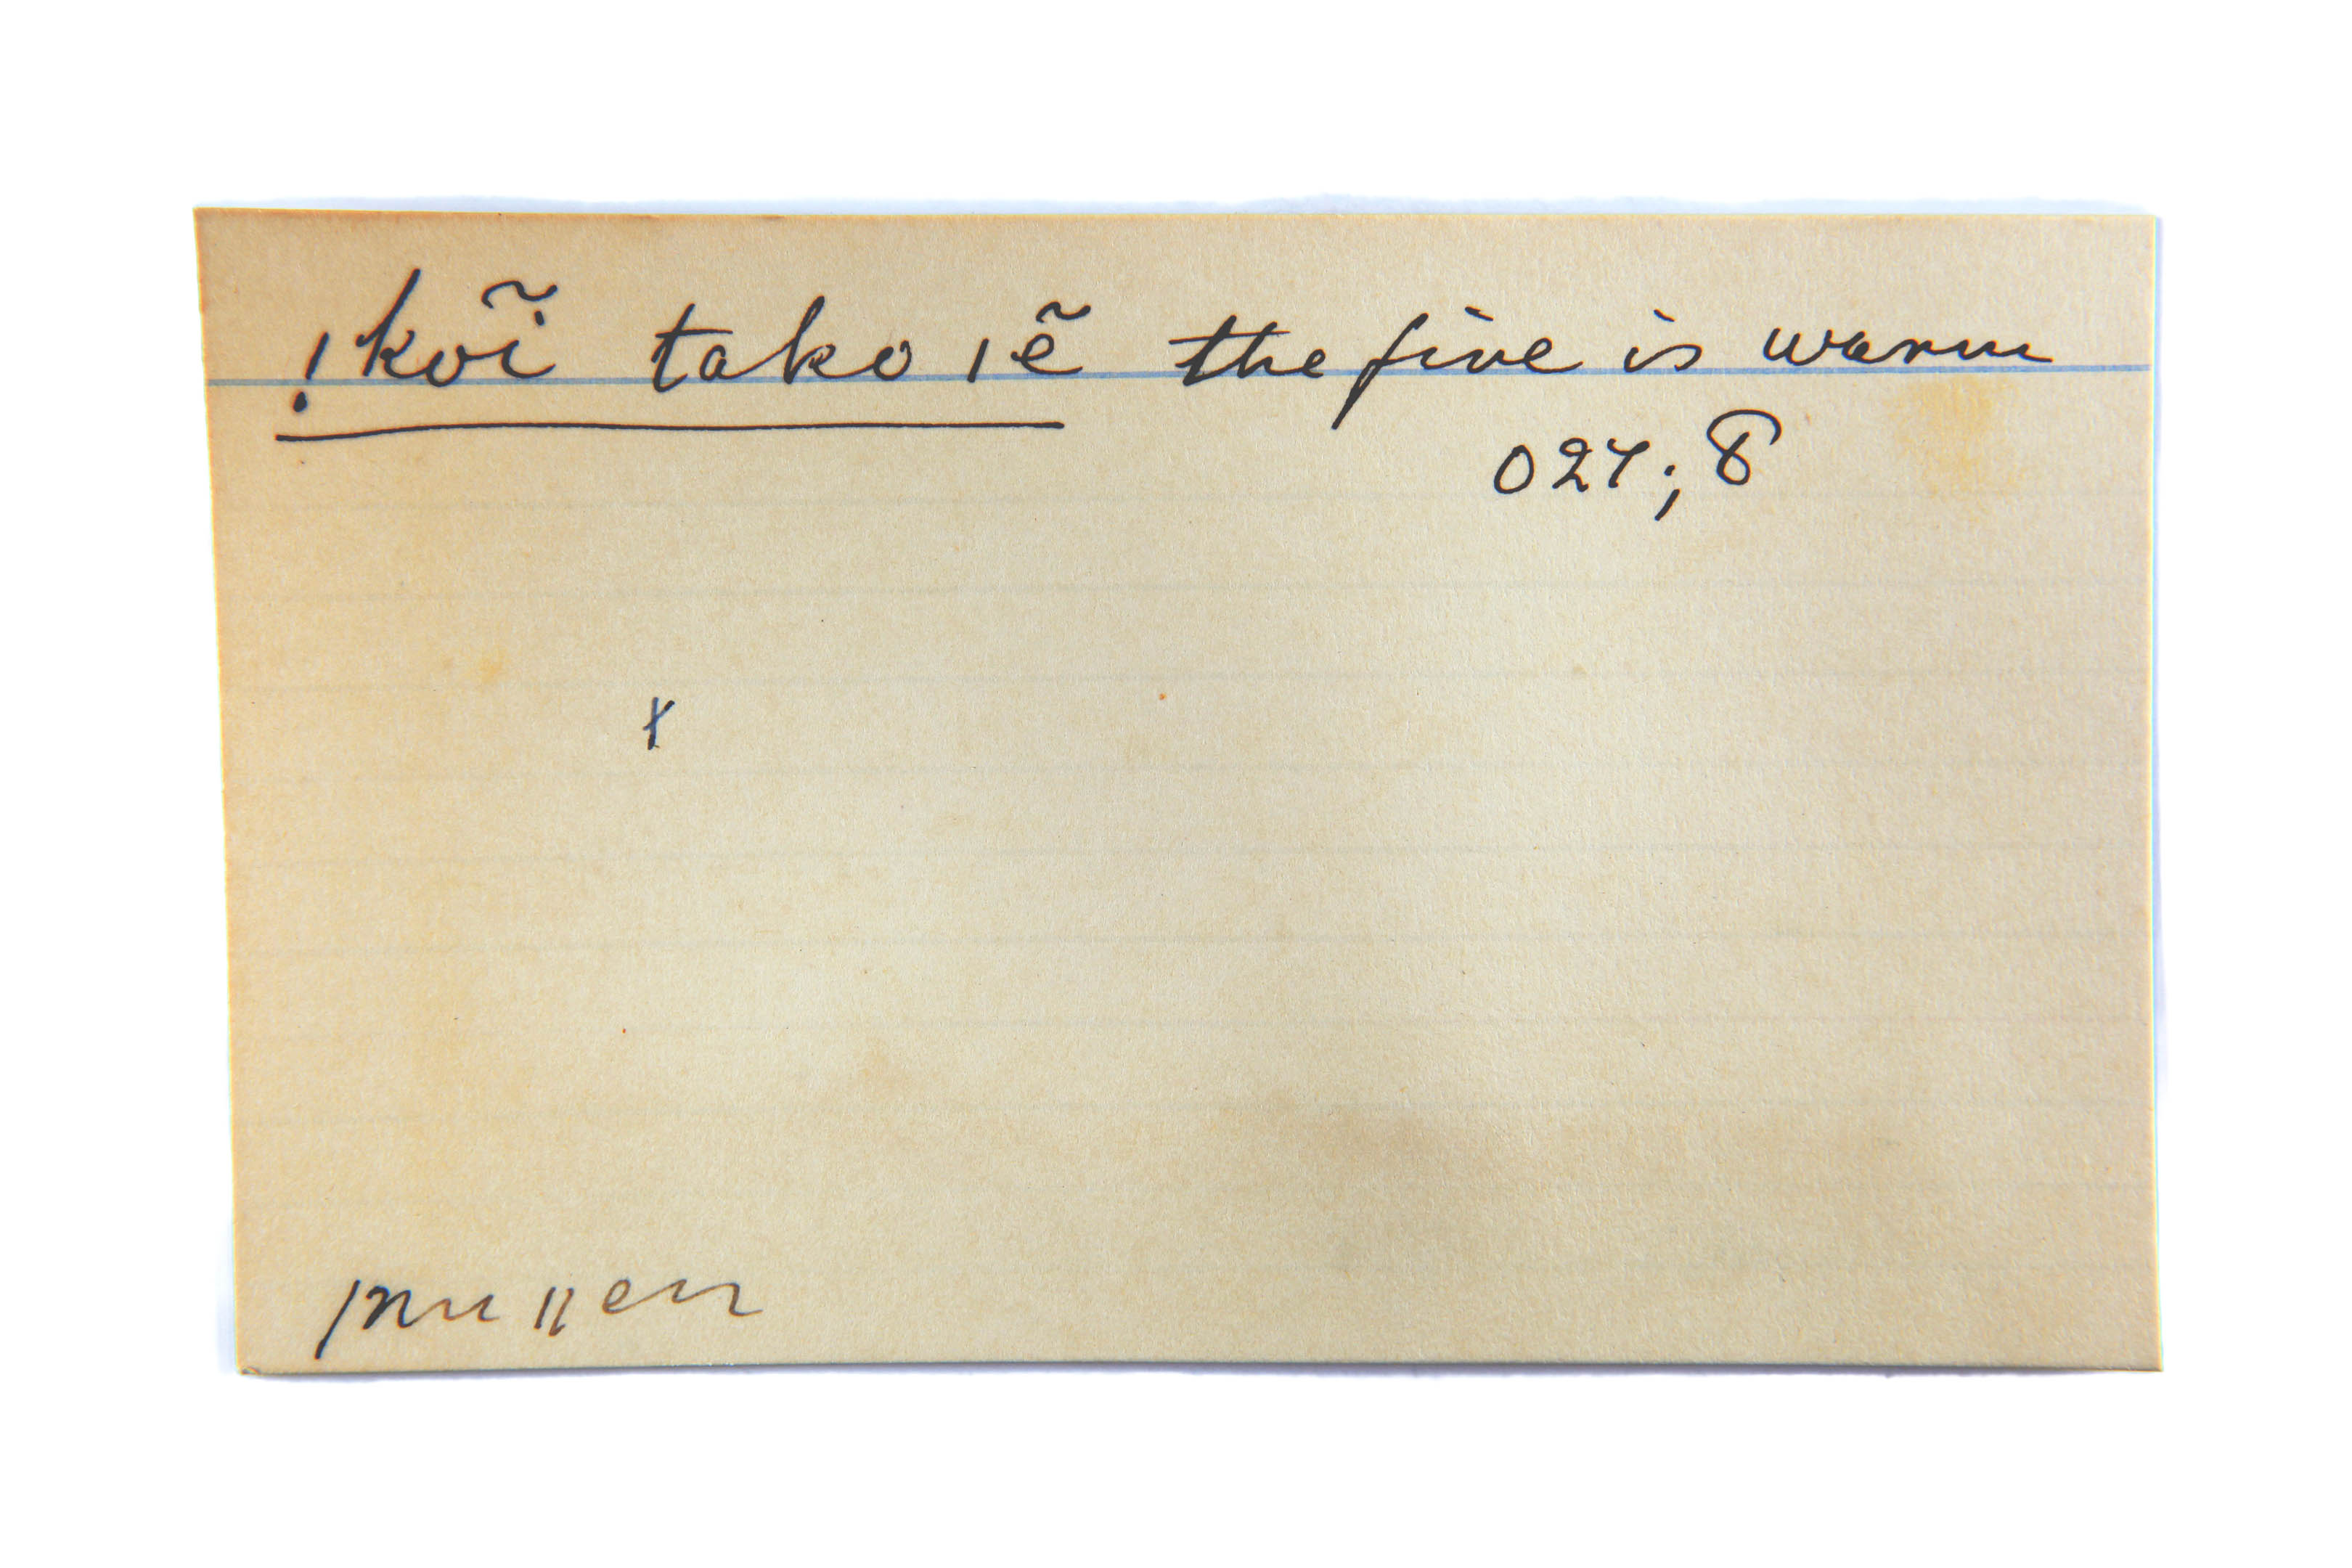 !kõĩ tako ǀẽ the fire is warm
027; 8
x
ǀnu ǁen